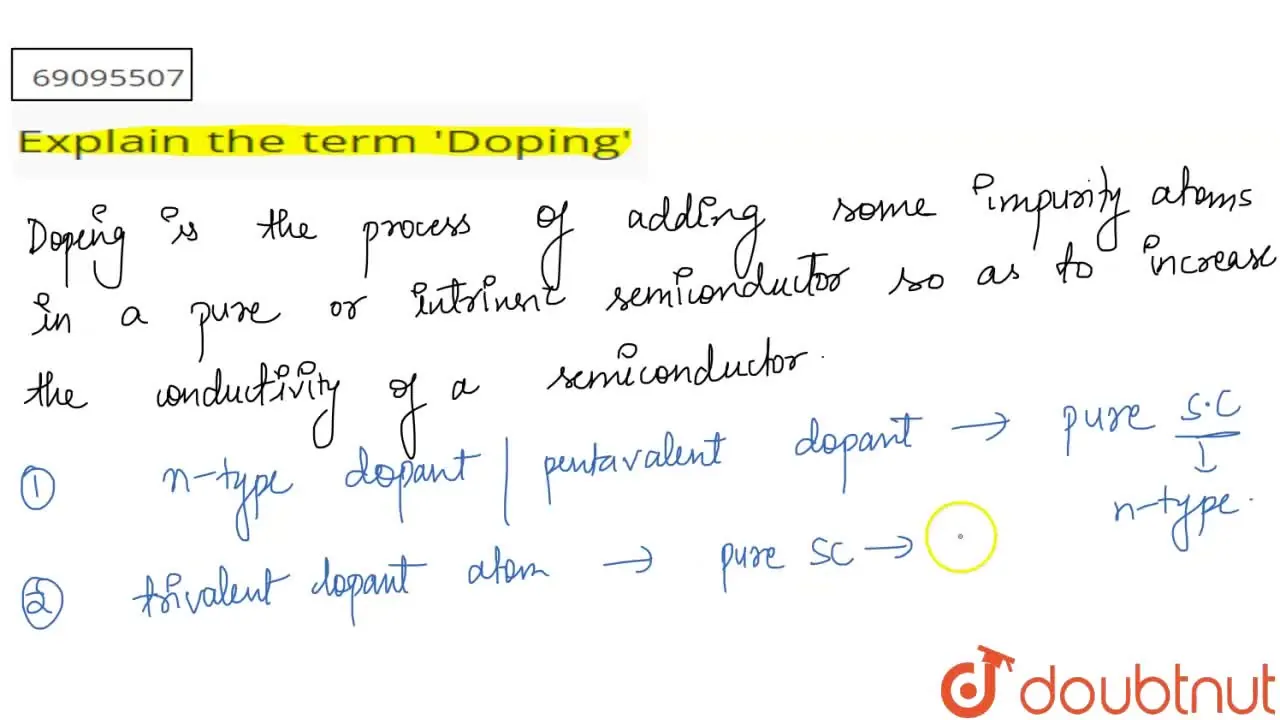 69095507
Explain the term 'Doping'
Doping is the process of adding some impurity atoms
in a pure or intrinsic semiconductor so as to increase
the conductivity of a semiconductor.
① n-type dopant | pentavalent dopant → pure S.C
↓
n-type.
② trivalent dopant atom → pure SC →
doubtnut